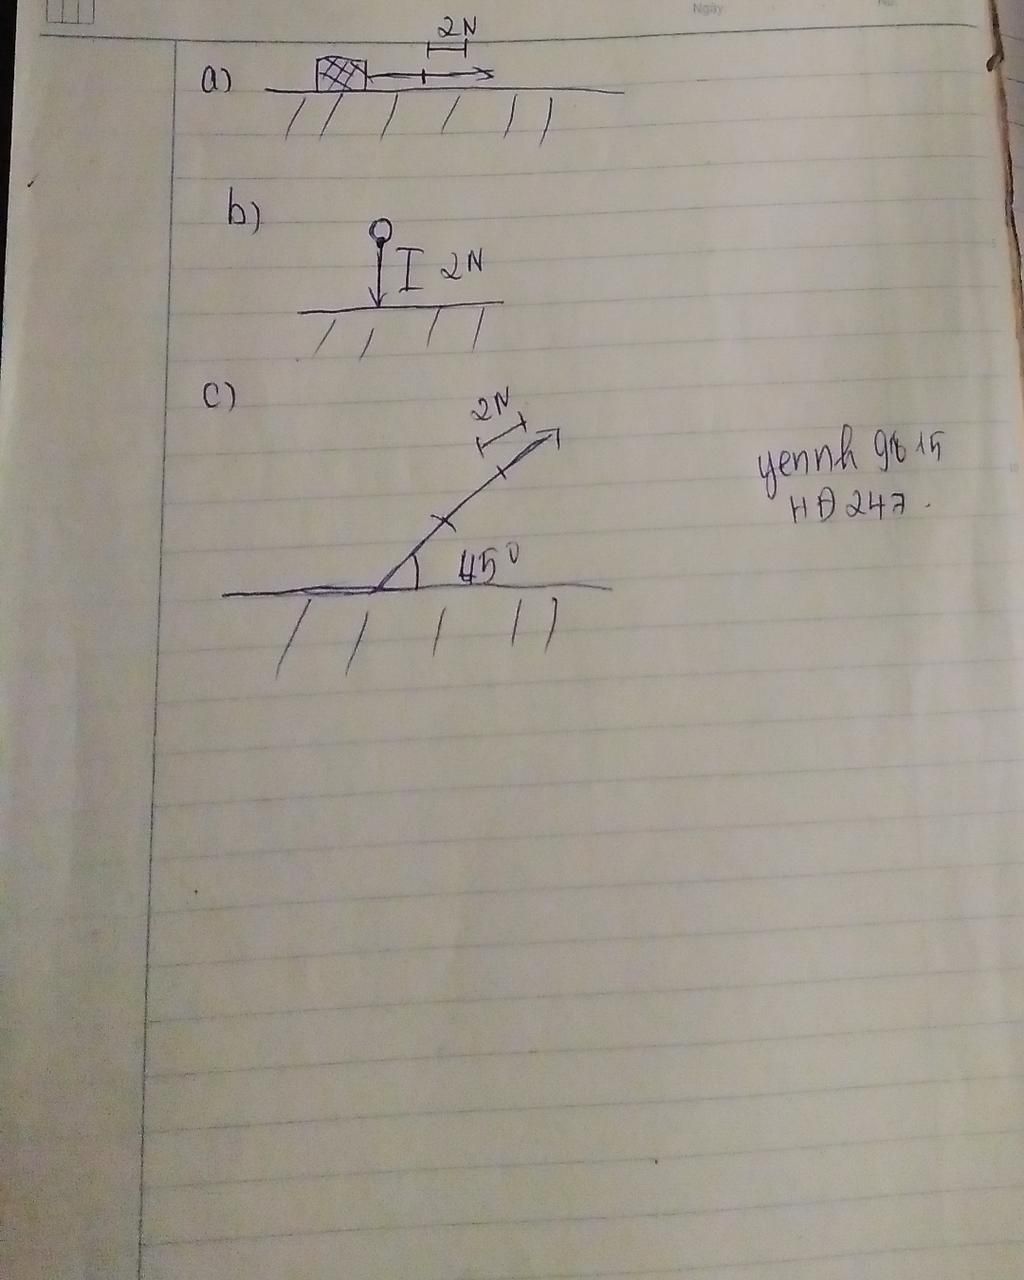 Ngày
No.
2N
a)
b)
2N
c)
2N
45°
yennh 98 15
HĐ 247.